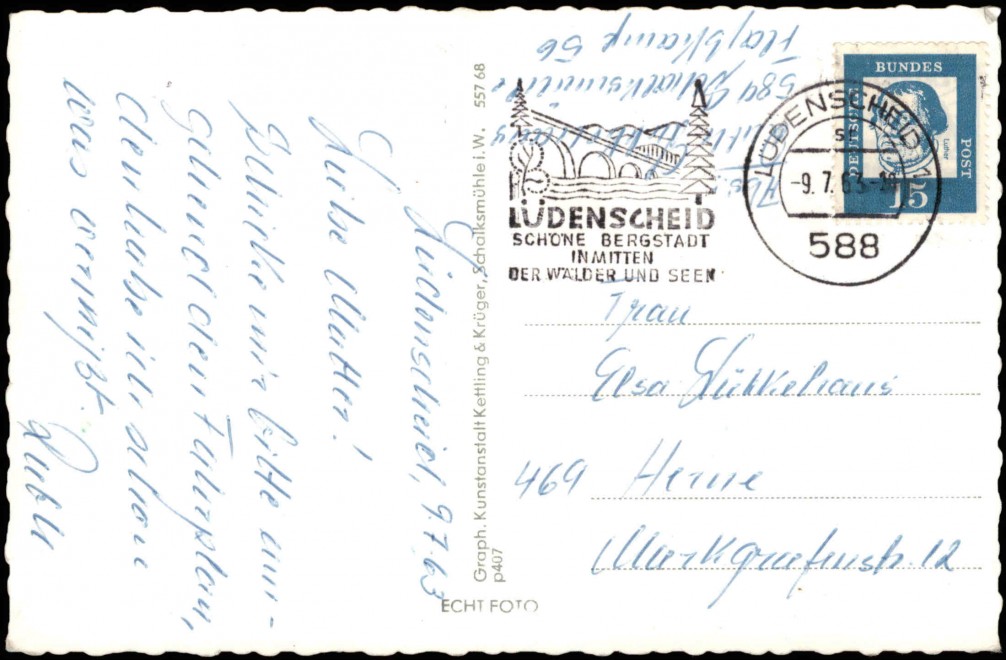 Lüdenscheid, 9.7.63
Liebe Mutter!
Schicke mir bitte um-
gehend den Fahrplan,
den habe ich schon
was vermißt.
557 68
Graph. Kunstanstalt Kettling & Krüger, Schalksmühle i. W.
p407
ECHT FOTO
584 Schalksmühle
56
LÜDENSCHEID
SCHÖNE BERGSTADT
INMITTEN
DER WÄLDER UND SEEN
LÜDENSCHEID 1
-9.7.63-
588
BUNDES
POST
DEUTSCHE
Luther
15
Frau
Elsa Lükkehaus
469 Herne
Markgrafenstr. 12